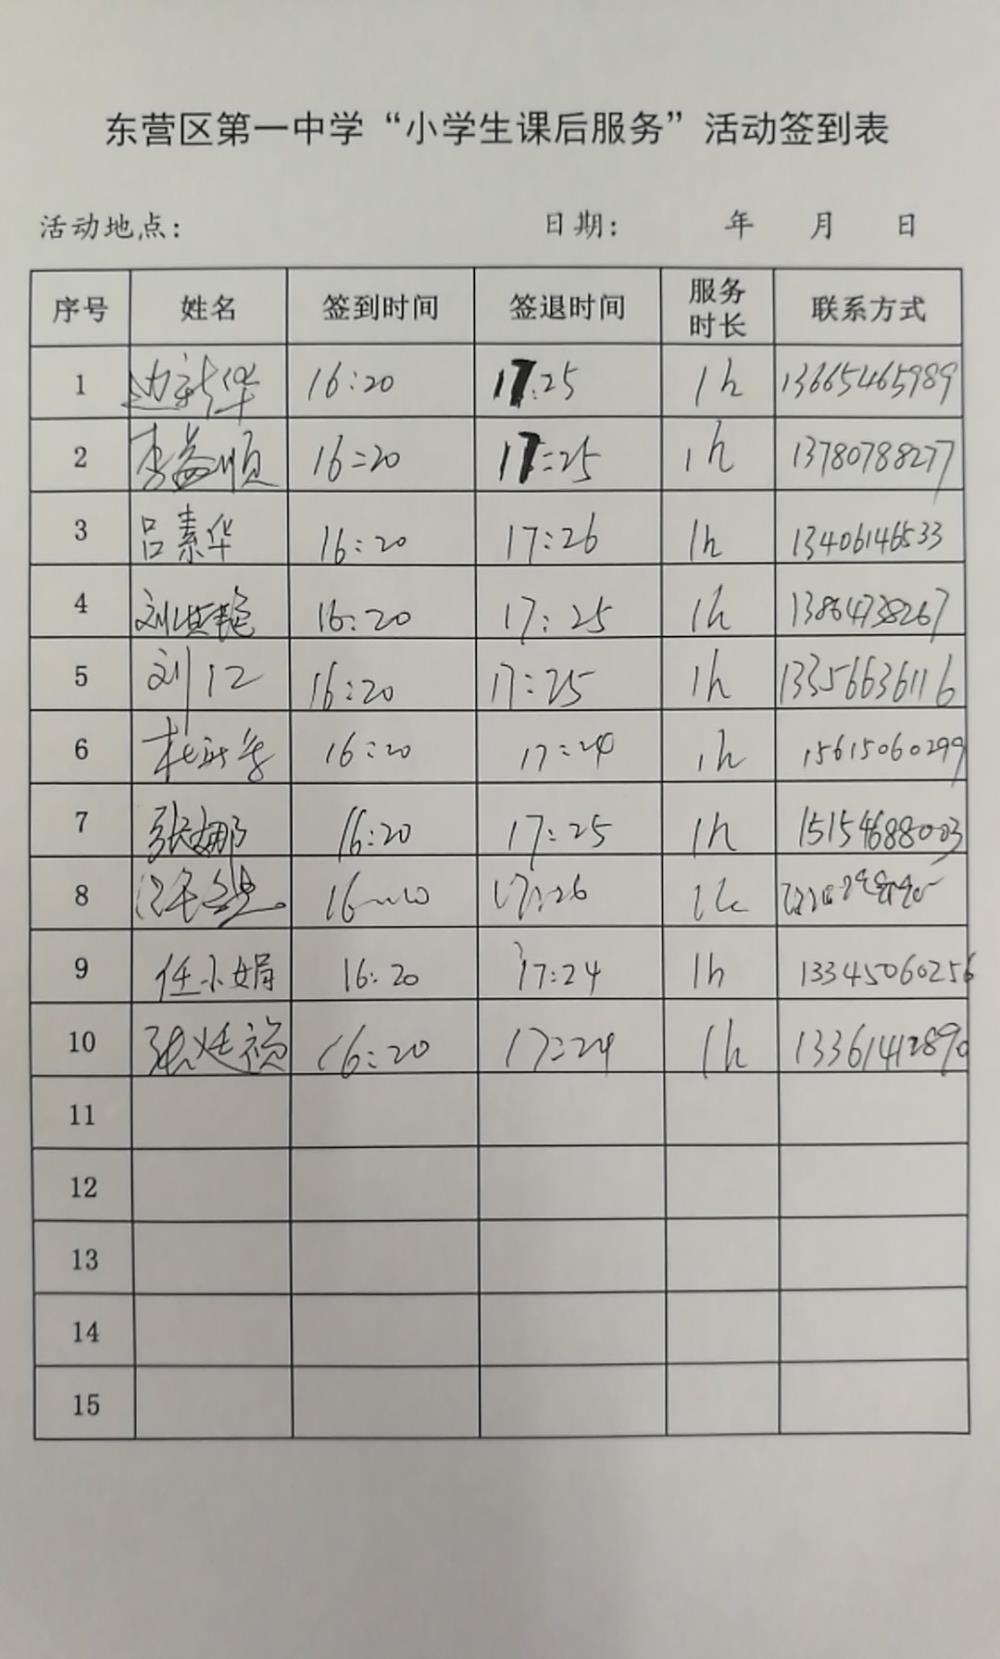 东营区第一中学“小学生课后服务”活动签到表
活动地点： 日期： 年 月 日
序号 姓名 签到时间 签退时间 服务时长 联系方式
1 边新华 16:20 17:25 1h 13665465989
2 李益顺 16:20 17:25 1h 13780788277
3 吕素华 16:20 17:26 1h 13406146533
4 刘洪艳 16:20 17:25 1h 13864738267
5 刘仁 16:20 17:25 1h 13356636116
6 16:20 17:24 1h 15615060299
7 张娜 16:20 17:25 1h 15154688003
8 17:26 1h
9 任小娟 16:20 17:24 1h 13345060256
10 张廷祯 16:20 17:24 1h 13361412890
11
12
13
14
15